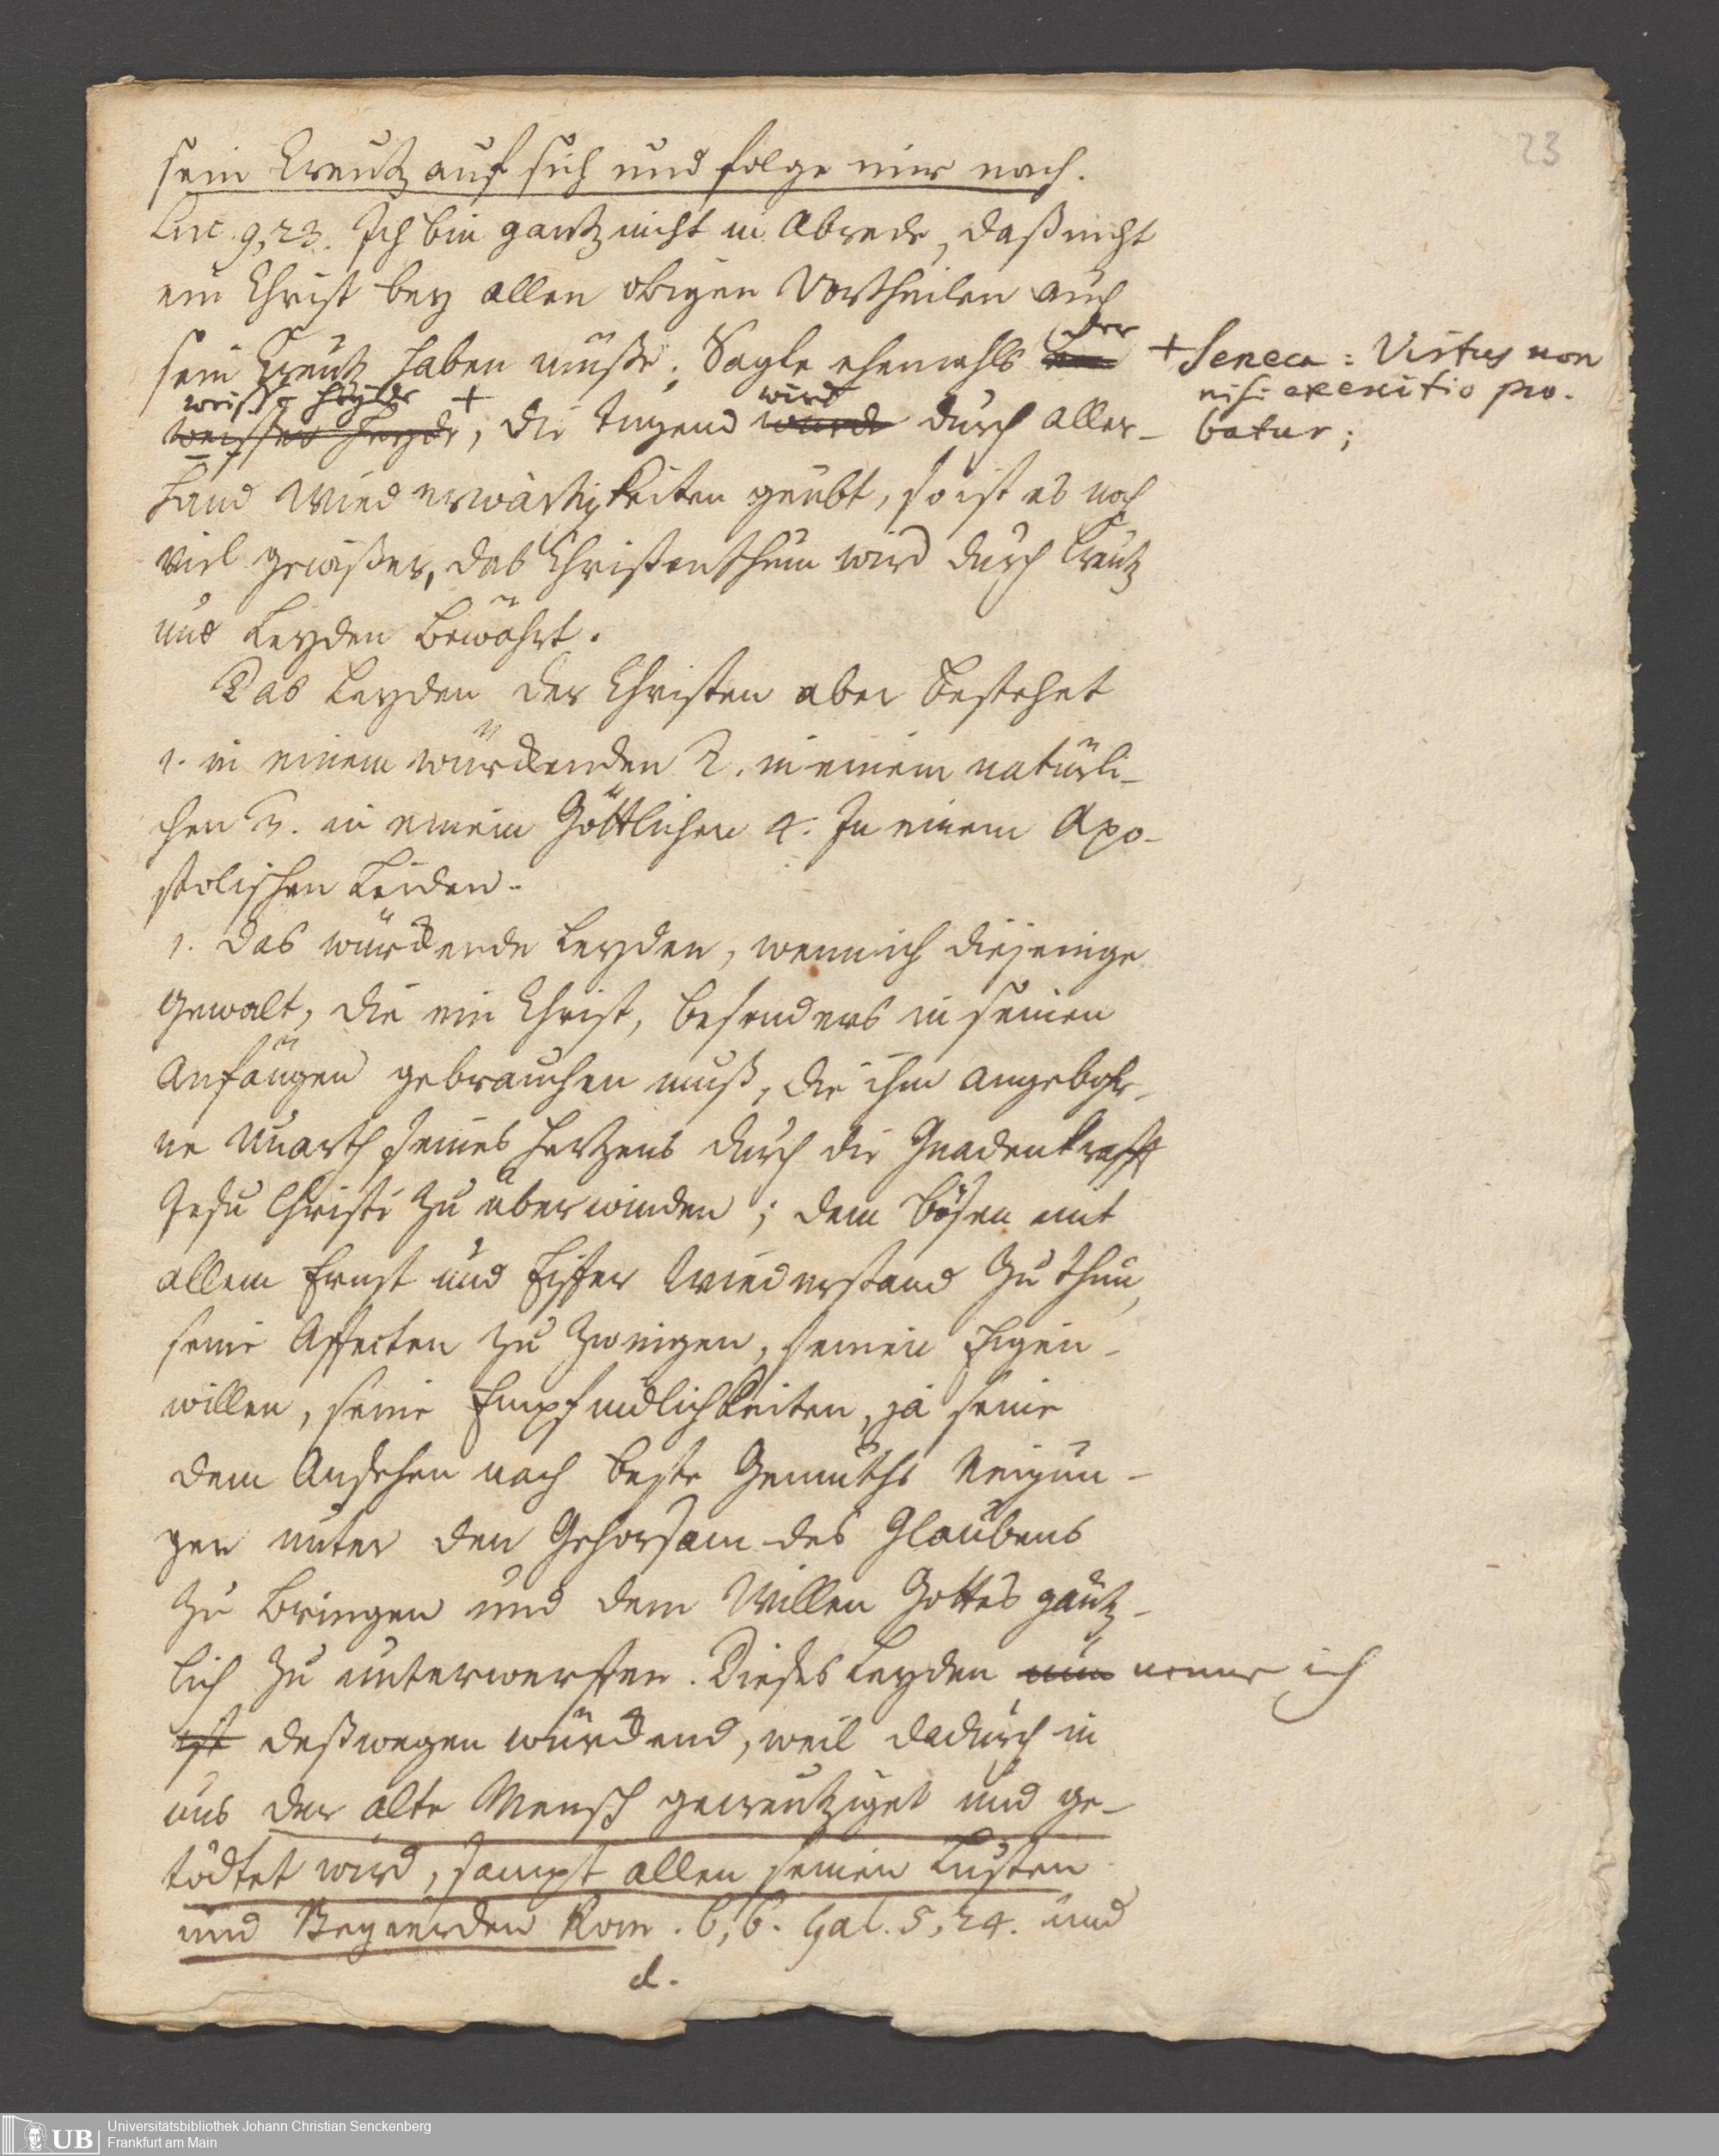 23
sein Creutz auf sich und folge mir nach.
Luc. 9, 23. Ich bin gantz nicht in Abrede, daß nicht
ein Christ bey allen obigen Vortheilen auch
sein Creutz haben müße; Sagte ehemahls der
weiße Heyde +
weisser Heyde, die Tugend wird wurde durch aller-
+ Seneca: Virtus non
nisi exercitio pro-
batur;
hand Wiederwärtigkeiten geübt, so ist es noch
viel gewißer, das Christenthum wird durch Creutz
und Leyden bewährt.
Das Leyden der Christen aber bestehet
1. in einem würckenden 2. in einem natürli-
chen 3. in einem Göttlichen 4. In einem Apo-
stolischen Leiden.
1. Das würckende Leyden, nenn ich diejenige
Gewalt, die ein Christ, besonders in seinen
Anfängen gebrauchen muß, die ihm angebohr-
ne Unarth seines Hertzens durch die Gnadenkrafft
Jesu Christi zu überwinden; dem bösen mit
allem Ernst und Eiffer Wiederstand zu thun,
seine Affecten zu zwingen, seinen Eigen-
willen, seine Empfindlichkeiten, ja seine
dem Ansehen nach beste Gemüths Neigun-
gen unter den Gehorsam des Glaubens
zu bringen und dem Willen Gottes gäntz-
lich zu unterwerffen. Dieses Leyden nun nenne ich
ist deßwegen würckend, weil dadurch in
uns der alte Mensch gecreutziget und ge-
tödtet wird, sampt allen seinen Lüsten
und Begierden Rom. 6, 6. Gal. 5, 24. und
d.
Universitätsbibliothek Johann Christian Senckenberg
Frankfurt am Main
UB